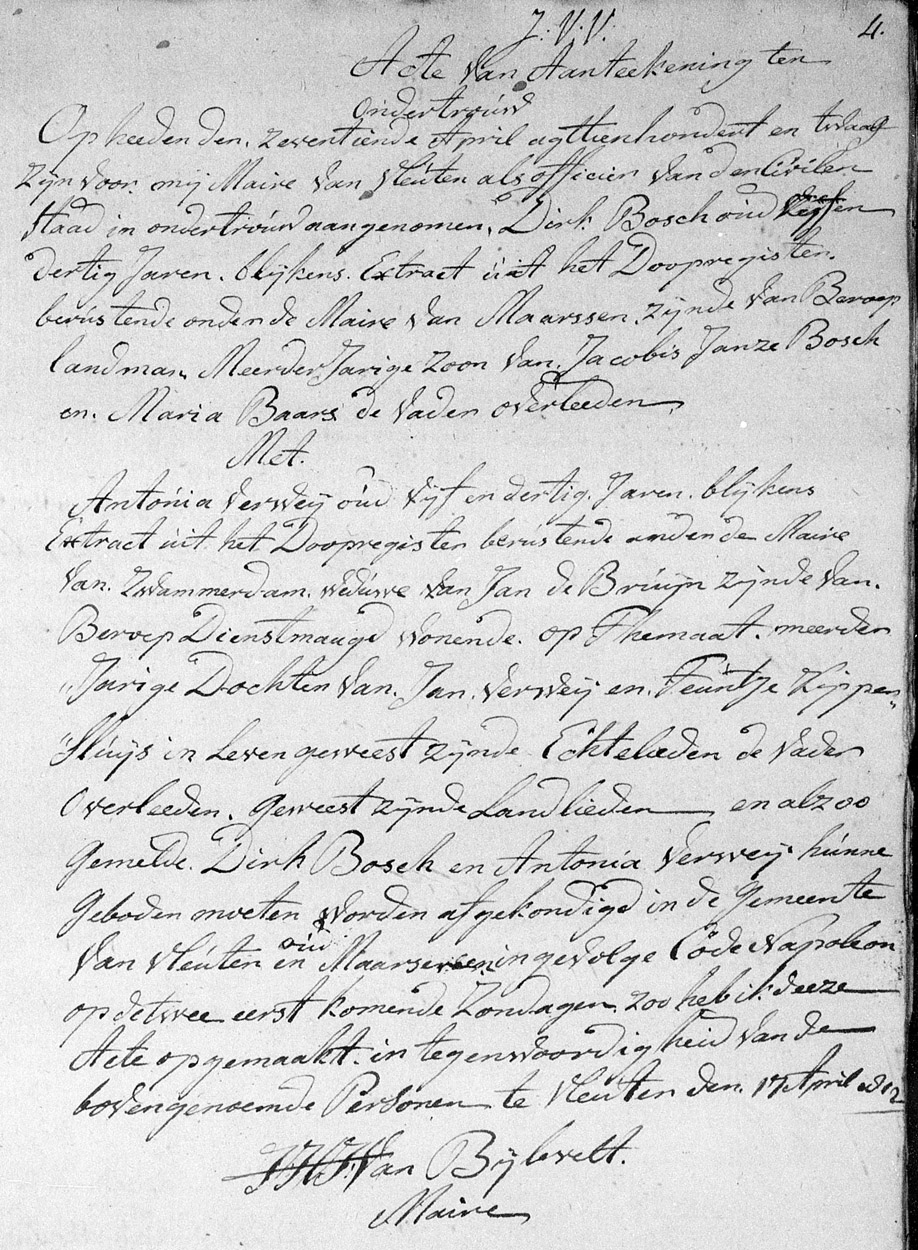 J: V: V: 4.
Acte van Aanteekening ten
Ondertrouw
Op heeden den zeventiende April agttienhondert en twaalf
zijn voor mij Maire van Vleuten als officier van den Civilen
Staad in ondertrouw aangenomen, Dirk Bosch oud en
dertig Jaren. blijkens Extract uit het Doopregister
berustende onder de Maire van Maarssen, zijnde van Beroep
landman Meerder Jarige Zoon van Jacobis Janze Bosch
en Maria Baars de Vader overleeden
Met.
Antónia Verweij oud Vijf en dertig Jaren. blijkens
Extract uit het Doopregister berustende onder de Maire
van Zwammerdam. weduwe van Jan de Bruijn zijnde van.
Beroep Dienstmaagd wonende op Themaat. meerder
"Jarige Dochter van Jan Verweij en Teuntje Kippen"
"Sluijs in Leven geweest zijnde Echteleden de Vader
Overleeden. geweest zijnde Landlieden en alzoo
gemelde Dirk Bosch en Antonia Verweij hunne
Geboden moeten worden afgekondigd in de Gemeente
van Vleuten en oud Maarseveen ingevolge Code Napoleon
op de twee eerst komende Zondagen zoo heb ik deeze
Acte opgemaakt in tegenwoordigheid van de
bovengenoemde Personen te Vleuten den 17 April 1812
van Bijlevelt.
Maire